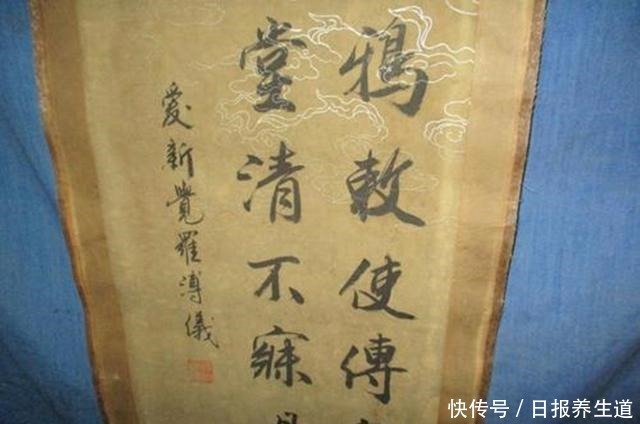 鴉敕使傳
堂清不寐
愛新覺羅溥儀
快传号 / 日报养生道